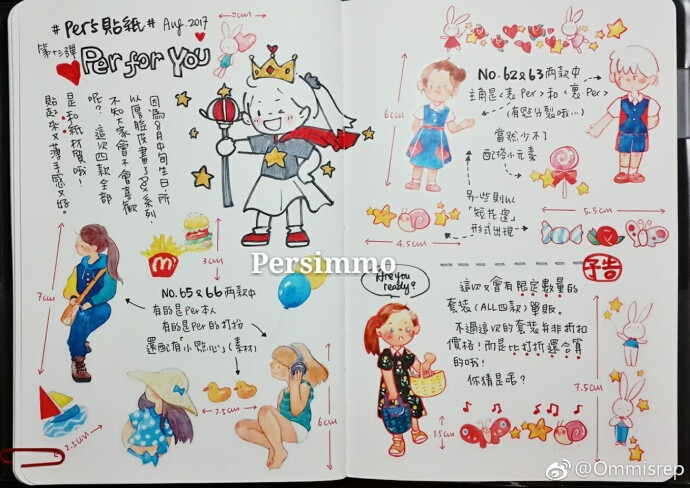 #Per's貼紙# Aug. 2017
第十三彈
Per for You
2cm
因為8月中旬生日,所
以厚臉皮畫了8系列,
不知大家會不會喜歡
呢?這次四款全部
是和紙材質哦!
貼起來又薄手感又好。
3cm
NO.65&66 两款中
有的是Per本人
有的是Per的打扮
還配有「小點心」(素材)
7cm
2.5cm
7.5cm
6cm
Persimmo
NO.62&63 两款中
主角是<表Per>和<裏Per>
(有點分裂哦…)
當然少不了
配搭小元素
另一些則以
「短花邊」
形式出現
6cm
4.5cm
5.5cm
預告
Are you
ready?
這次又會有限定數量的
套裝(ALL四款)單販。
不過這次的套裝並非折扣
價格!而是比打折還合算
的哦!
你猜是呢?
1.5cm
7.5cm
@Ommisrep